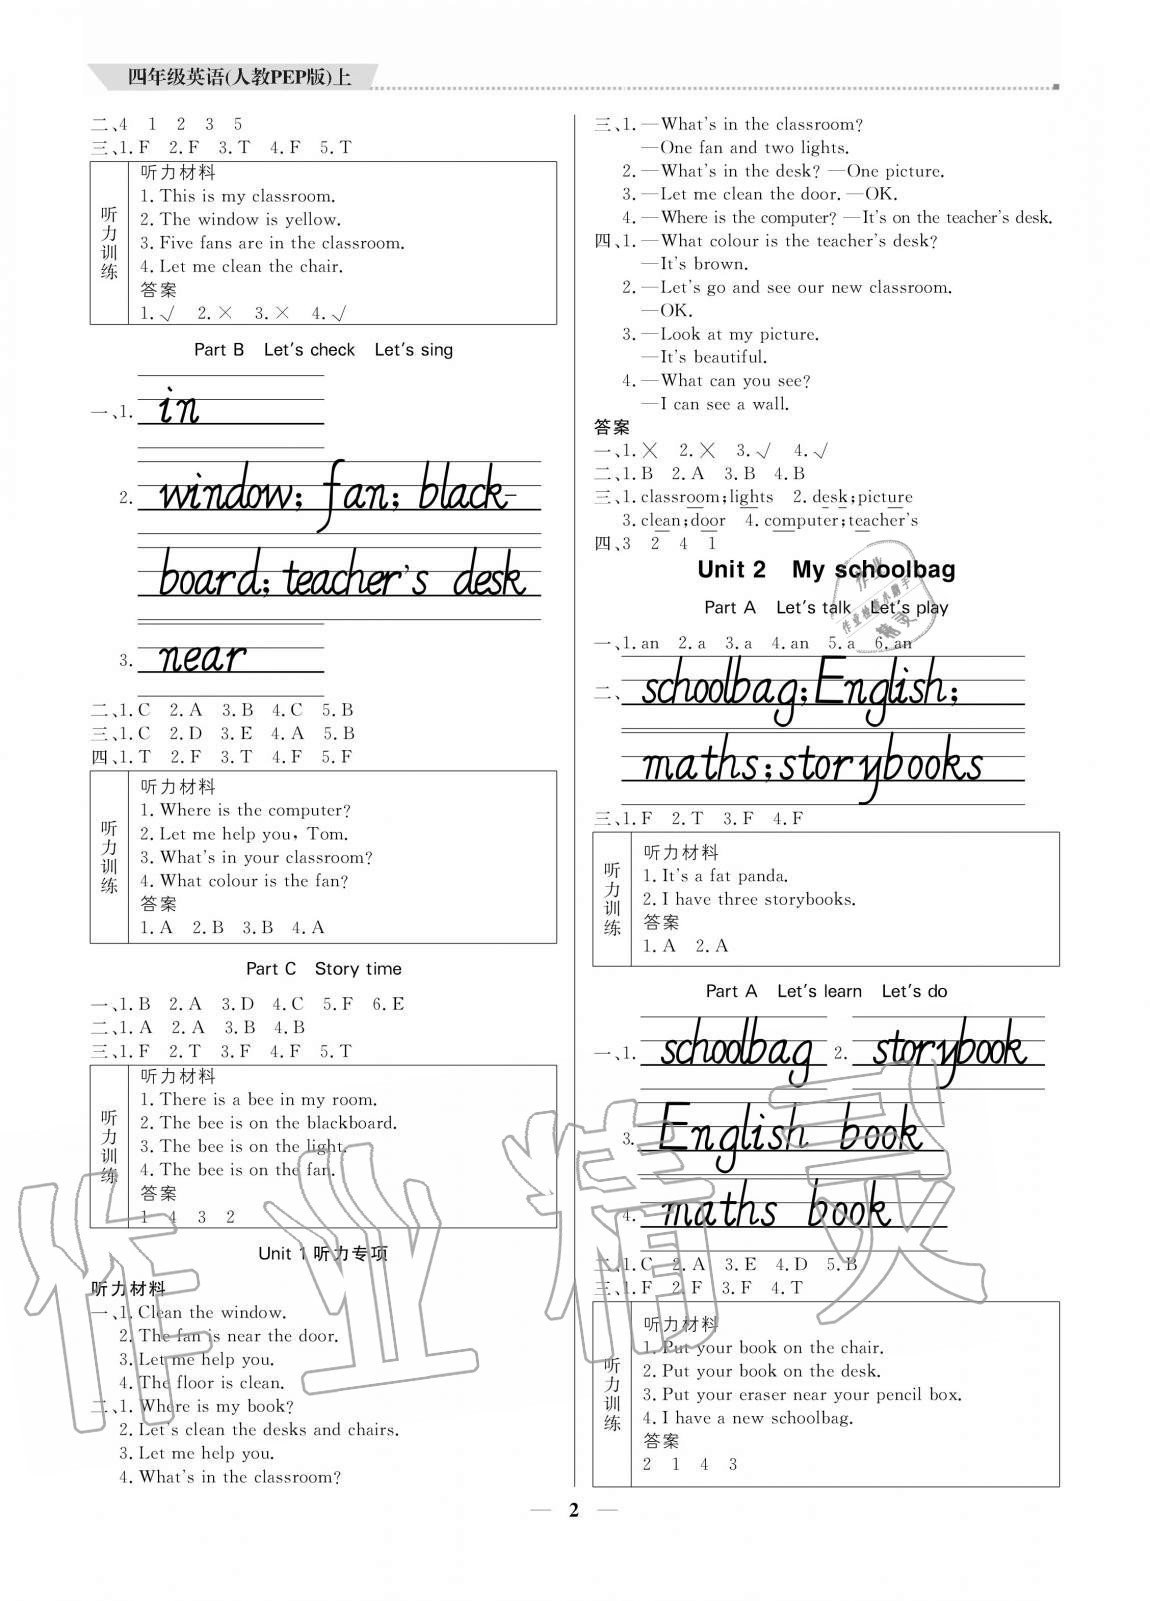 四年级英语(人教PEP版)上
二、4 1 2 3 5
三、1. F 2. F 3. T 4. F 5. T
听力训练
听力材料
1. This is my classroom.
2. The window is yellow.
3. Five fans are in the classroom.
4. Let me clean the chair.
答案
1. √ 2. × 3. × 4. √
Part B Let's check Let's sing
一、1. in
2. window; fan; black-
board; teacher's desk
3. near
二、1. C 2. A 3. B 4. C 5. B
三、1. C 2. D 3. E 4. A 5. B
四、1. T 2. F 3. T 4. F 5. F
听力训练
听力材料
1. Where is the computer?
2. Let me help you, Tom.
3. What's in your classroom?
4. What colour is the fan?
答案
1. A 2. B 3. B 4. A
Part C Story time
一、1. B 2. A 3. D 4. C 5. F 6. E
二、1. A 2. A 3. B 4. B
三、1. F 2. T 3. F 4. F 5. T
听力训练
听力材料
1. There is a bee in my room.
2. The bee is on the blackboard.
3. The bee is on the light.
4. The bee is on the fan.
答案
1 4 3 2
Unit 1 听力专项
听力材料
一、1. Clean the window.
2. The fan is near the door.
3. Let me help you.
4. The floor is clean.
二、1. Where is my book?
2. Let's clean the desks and chairs.
3. Let me help you.
4. What's in the classroom?
三、1. —What's in the classroom?
—One fan and two lights.
2. —What's in the desk? —One picture.
3. —Let me clean the door. —OK.
4. —Where is the computer? —It's on the teacher's desk.
四、1. —What colour is the teacher's desk?
—It's brown.
2. —Let's go and see our new classroom.
—OK.
3. —Look at my picture.
—It's beautiful.
4. —What can you see?
—I can see a wall.
答案
一、1. × 2. × 3. √ 4. √
二、1. B 2. A 3. B 4. B
三、1. classroom; lights 2. desk; picture
3. clean; door 4. computer; teacher's
四、3 2 4 1
Unit 2 My schoolbag
Part A Let's talk Let's play
一、1. an 2. a 3. a 4. an 5. a 6. an
二、schoolbag; English;
maths; storybooks
三、1. F 2. T 3. F 4. F
听力训练
听力材料
1. It's a fat panda.
2. I have three storybooks.
答案
1. A 2. A
Part A Let's learn Let's do
一、1. schoolbag 2. storybook
3. English book
4. maths book
二、1. C 2. A 3. E 4. D 5. B
三、1. F 2. F 3. F 4. T
听力训练
听力材料
1. Put your book on the chair.
2. Put your book on the desk.
3. Put your eraser near your pencil box.
4. I have a new schoolbag.
答案
2 1 4 3
— 2 —
作业精灵